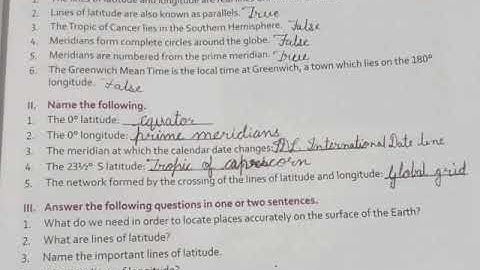 1. The lines of latitude and longitude are real lines
2. Lines of latitude are also known as parallels. True
3. The Tropic of Cancer lies in the Southern Hemisphere. False
4. Meridians form complete circles around the globe. False
5. Meridians are numbered from the prime meridian. True
6. The Greenwich Mean Time is the local time at Greenwich, a town which lies on the 180°
longitude. False
II. Name the following.
1. The 0° latitude: equator
2. The 0° longitude: prime meridians
3. The meridian at which the calendar date changes: International Date line
4. The 23½° S latitude: Tropic of capricorn
5. The network formed by the crossing of the lines of latitude and longitude: Global grid
III. Answer the following questions in one or two sentences.
1. What do we need in order to locate places accurately on the surface of the Earth?
2. What are lines of latitude?
3. Name the important lines of latitude.